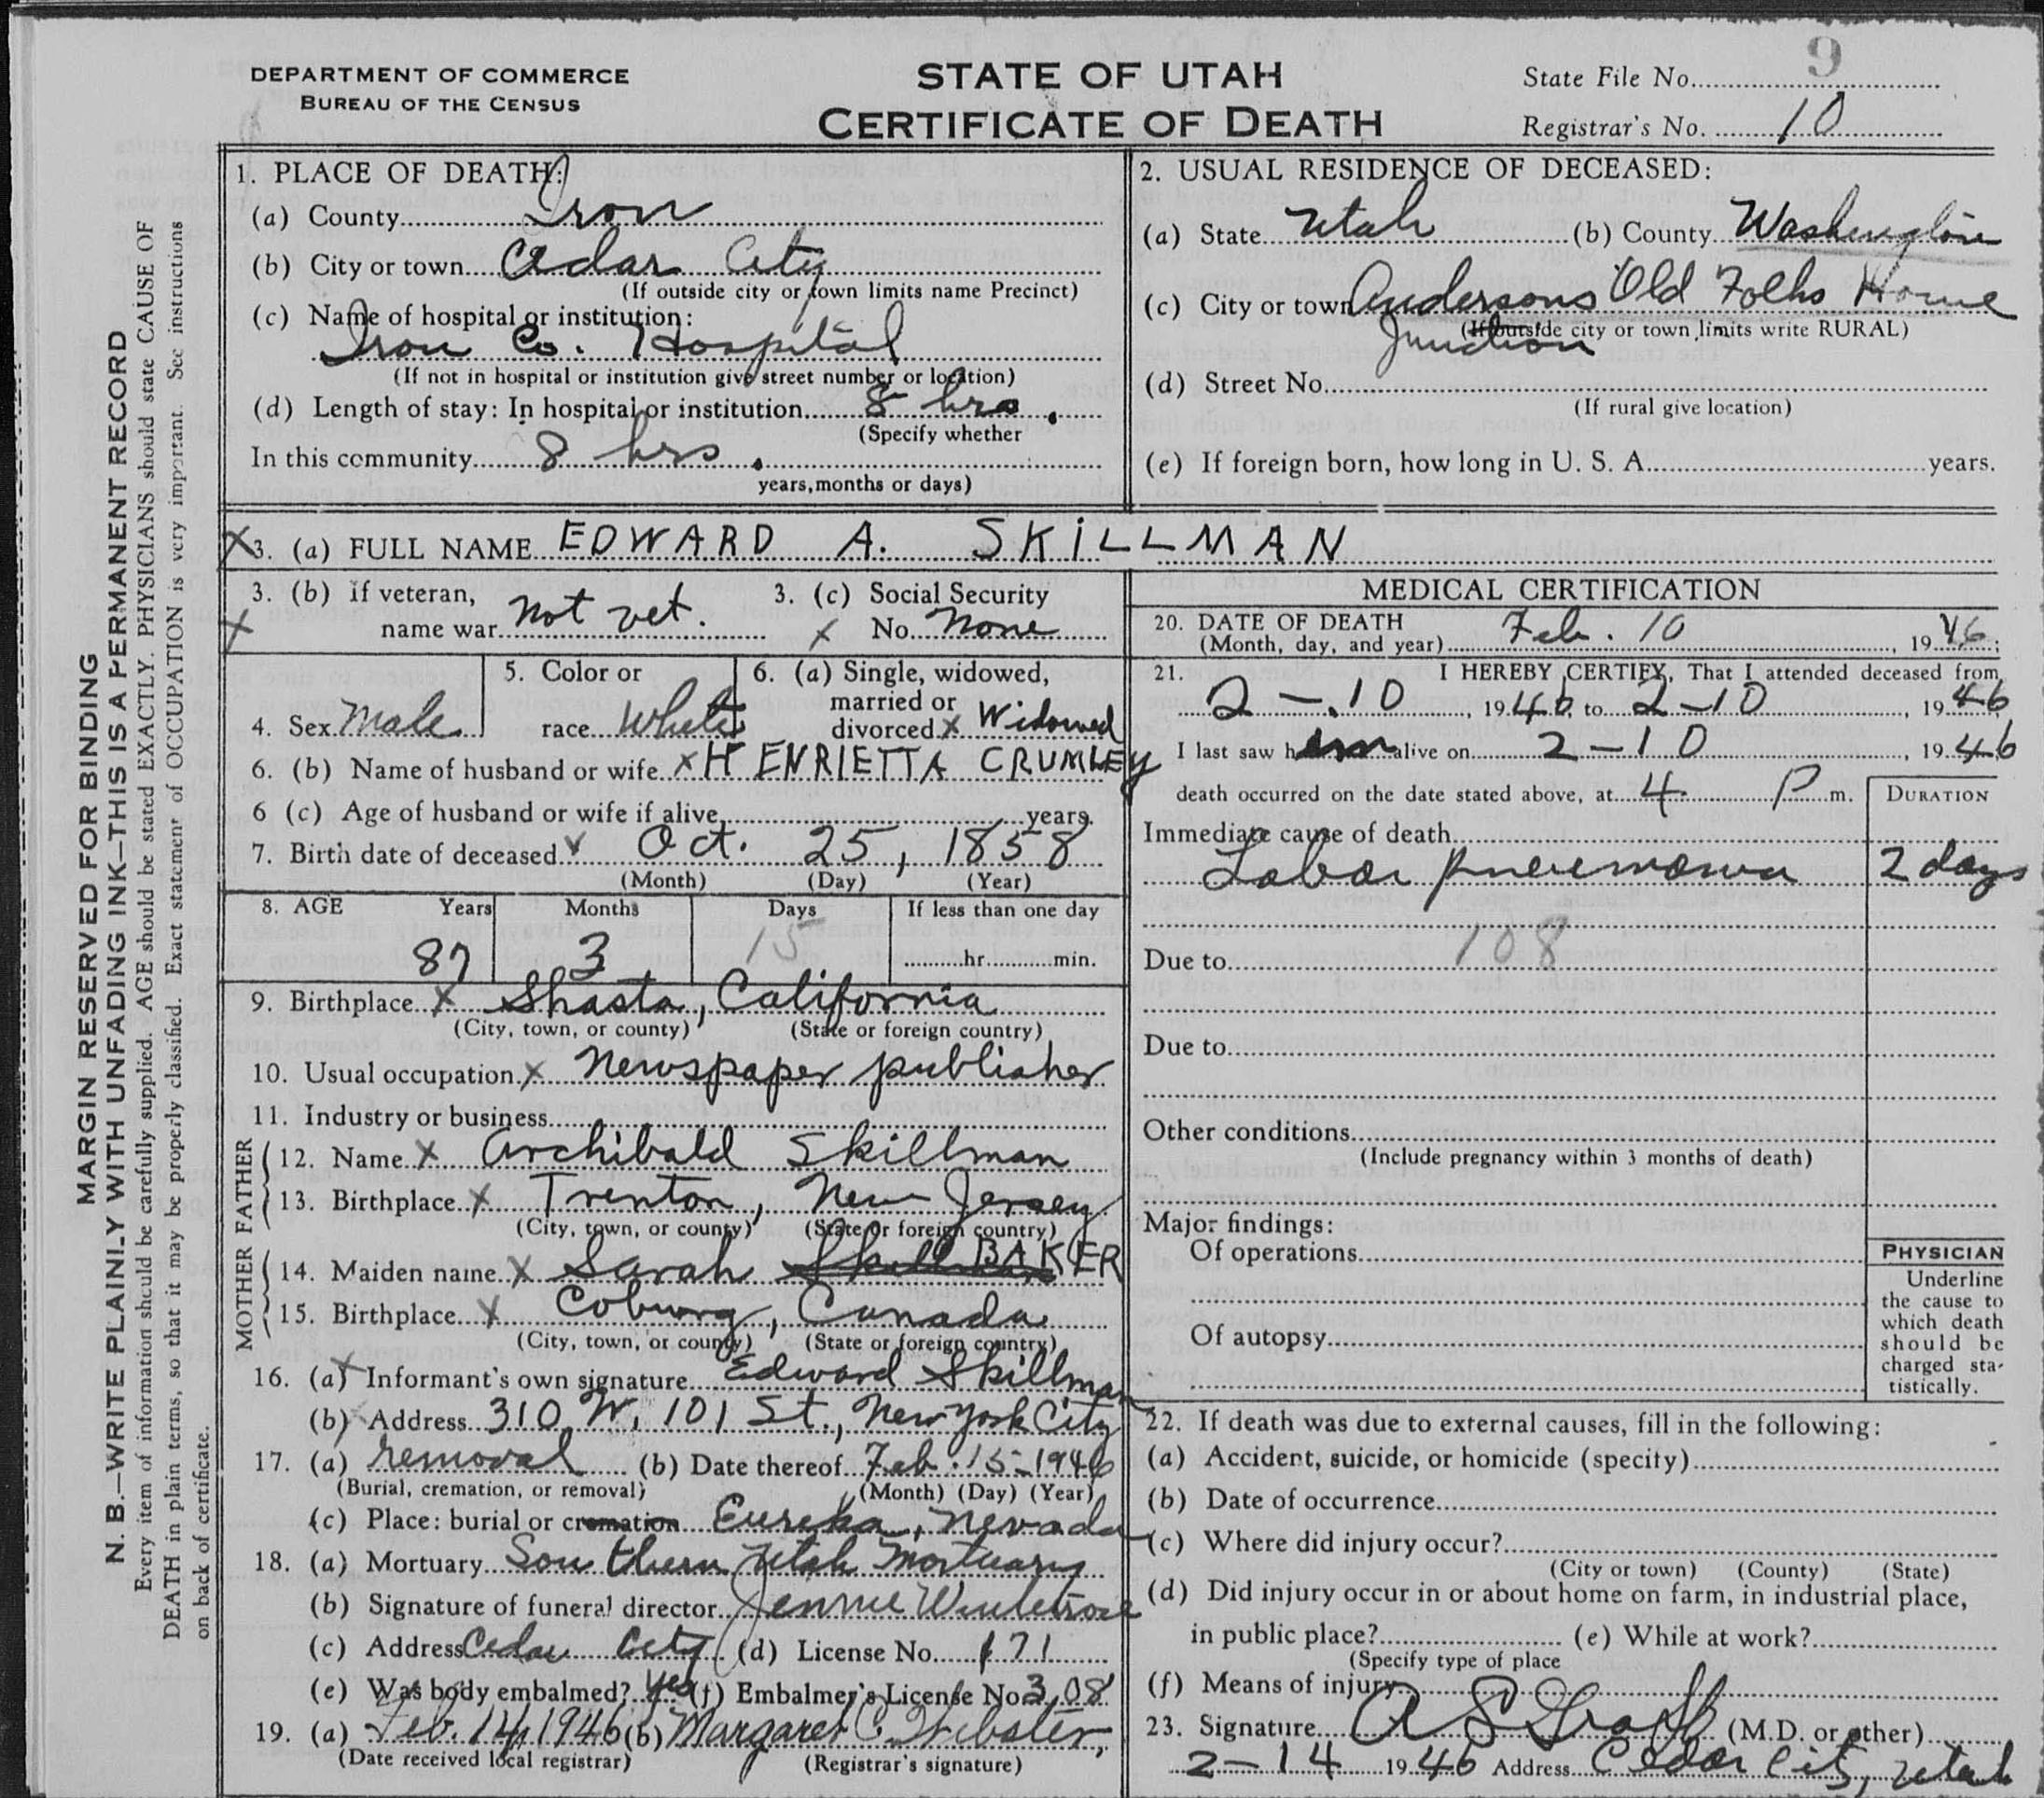 DEPARTMENT OF COMMERCE
BUREAU OF THE CENSUS
STATE OF UTAH
CERTIFICATE OF DEATH
State File No. 9
Registrar's No. 10
MARGIN RESERVED FOR BINDING
N. B.—WRITE PLAINLY WITH UNFADING INK—THIS IS A PERMANENT RECORD
Every item of information should be carefully supplied. AGE should be stated EXACTLY. PHYSICIANS should state CAUSE OF
DEATH in plain terms, so that it may be properly classified. Exact statement of OCCUPATION is very important. See instructions
on back of certificate.
1. PLACE OF DEATH:
(a) County Iron
(b) City or town Cedar City
(If outside city or town limits name Precinct)
(c) Name of hospital or institution:
Iron Co. Hospital
(If not in hospital or institution give street number or location)
(d) Length of stay: In hospital or institution 8 hrs.
(Specify whether
In this community 8 hrs.
years, months or days)
2. USUAL RESIDENCE OF DECEASED:
(a) State Utah (b) County Washington
(c) City or town Andersons Old Folks Home
Junction
(If outside city or town limits write RURAL)
(d) Street No.
(If rural give location)
(e) If foreign born, how long in U. S. A. years.
X 3. (a) FULL NAME EDWARD A. SKILLMAN
3. (b) if veteran,
X name war not vet.
3. (c) Social Security
X No. None
4. Sex Male
5. Color or
race White
6. (a) Single, widowed,
married or
divorced X Widowed
6. (b) Name of husband or wife X HENRIETTA CRUMLEY
6 (c) Age of husband or wife if alive years.
7. Birth date of deceased Oct. 25, 1858
(Month) (Day) (Year)
8. AGE Years Months Days If less than one day
87 3 15 hr. min.
9. Birthplace X Shasta, California
(City, town, or county) (State or foreign country)
10. Usual occupation X Newspaper publisher
11. Industry or business
FATHER
12. Name X Archibald Skillman
13. Birthplace X Trenton, New Jersey
(City, town, or county) (State or foreign country)
MOTHER
14. Maiden name X Sarah Skillman BAKER
15. Birthplace X Coburg, Canada
(City, town, or county) (State or foreign country)
16. (a) X Informant's own signature Edward Skillman
(b) Address 310 W. 101 St., New York City
17. (a) removal (b) Date thereof Feb. 15-1946
(Burial, cremation, or removal) (Month) (Day) (Year)
(c) Place: burial or cremation Eureka, Nevada
18. (a) Mortuary Southern Utah Mortuary
(b) Signature of funeral director Jennie
(c) Address Cedar City (d) License No. 171
(e) Was body embalmed? yes (f) Embalmer's License No. 308
19. (a) Feb. 14, 1946 (b) Margaret C. Webster,
(Date received local registrar) (Registrar's signature)
MEDICAL CERTIFICATION
20. DATE OF DEATH
(Month, day, and year) Feb. 10, 1946;
21. I HEREBY CERTIFY, That I attended deceased from
2-10, 1946, to 2-10, 1946
I last saw him alive on 2-10, 1946
death occurred on the date stated above, at 4 P.m.
DURATION
Immediate cause of death
Lobar pneumonia 2 days
Due to 108
Due to
Other conditions
(Include pregnancy within 3 months of death)
Major findings:
Of operations
Of autopsy
PHYSICIAN
Underline
the cause to
which death
should be
charged sta-
tistically.
22. If death was due to external causes, fill in the following:
(a) Accident, suicide, or homicide (specify)
(b) Date of occurrence
(c) Where did injury occur?
(City or town) (County) (State)
(d) Did injury occur in or about home on farm, in industrial place,
in public place? (e) While at work?
(Specify type of place
(f) Means of injury
23. Signature (M.D. or other)
2-14 1946 Address Cedar City, Utah